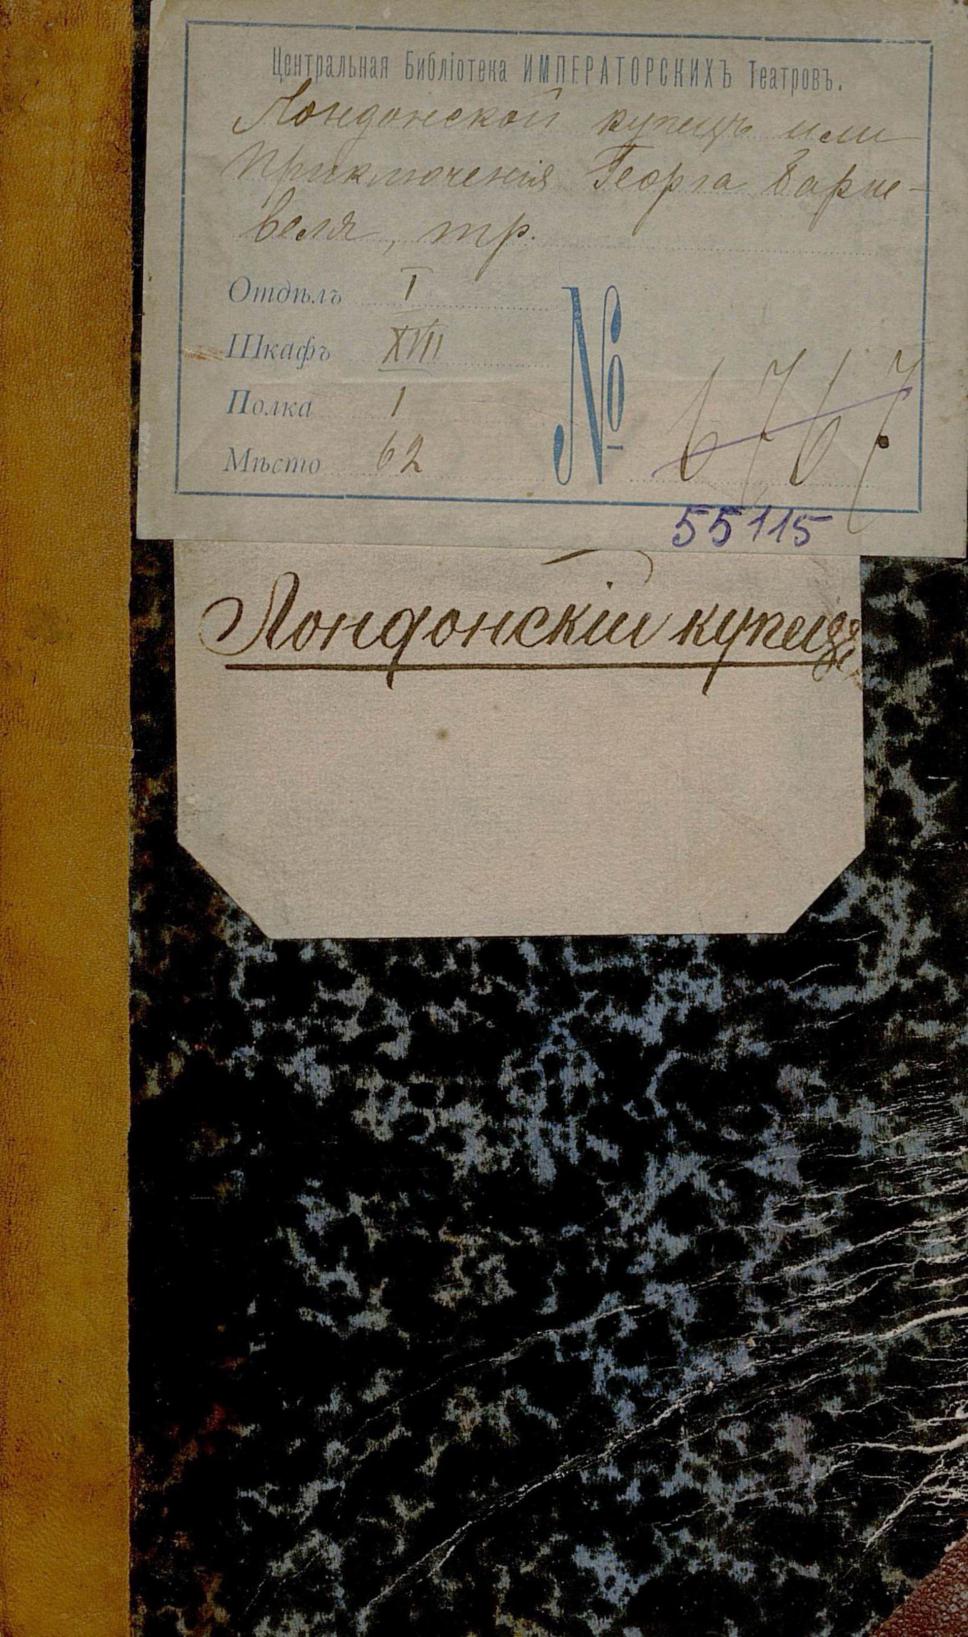 Центральная Библіотека ИМПЕРАТОРСКИХЪ Театровъ.
Лондонской купецъ или
Приключенія Георга Барне-
веля, тр.
Отдѣлъ I
Шкафъ XVIII
Полка 1
Мѣсто 62
№ 6767
55115
Лондонскій купецъ